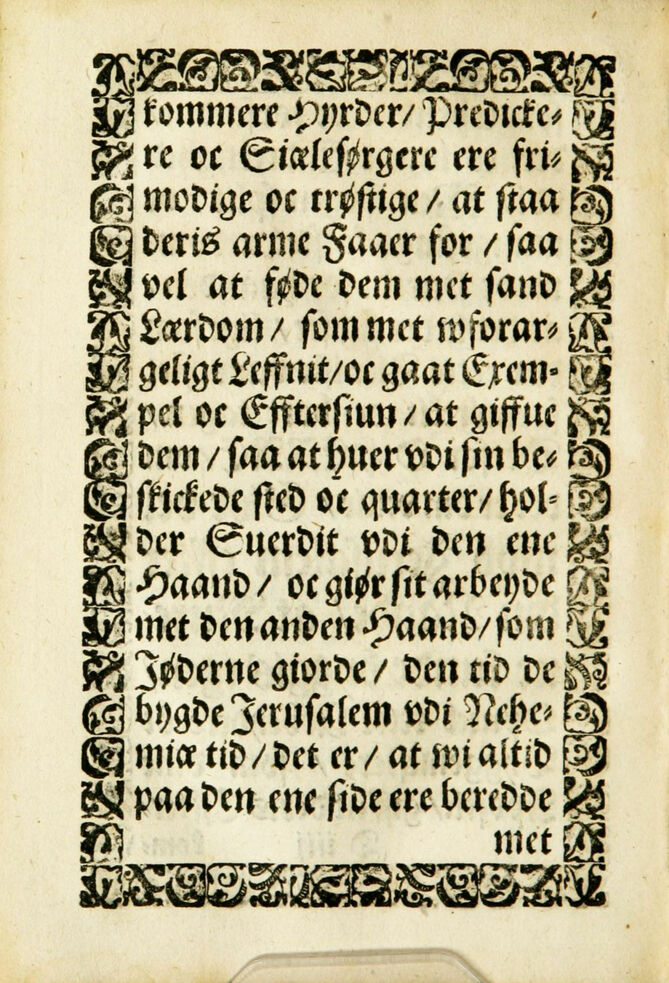 kommere Hyrder/ Predicke⸗
re oc Siælesørgere ere fri⸗
modige oc trøstige / at staa
deris arme Faaer for / saa
vel at føde dem met sand
Lærdom / som met wforar⸗
geligt Leffnit/oc gaat Exem⸗
pel oc Efftersiun / at giffue
dem / saa at huer vdi sin be⸗
skickede sted oc quarter/ hol⸗
der Suerdit vdi den ene
Haand / oc giør sit arbeyde
met den anden Haand/som
Jøderne giorde / den tid de
bygde Jerusalem vdi Nehe⸗
miæ tid /det er / at wi altid
paa den ene side ere beredde
met